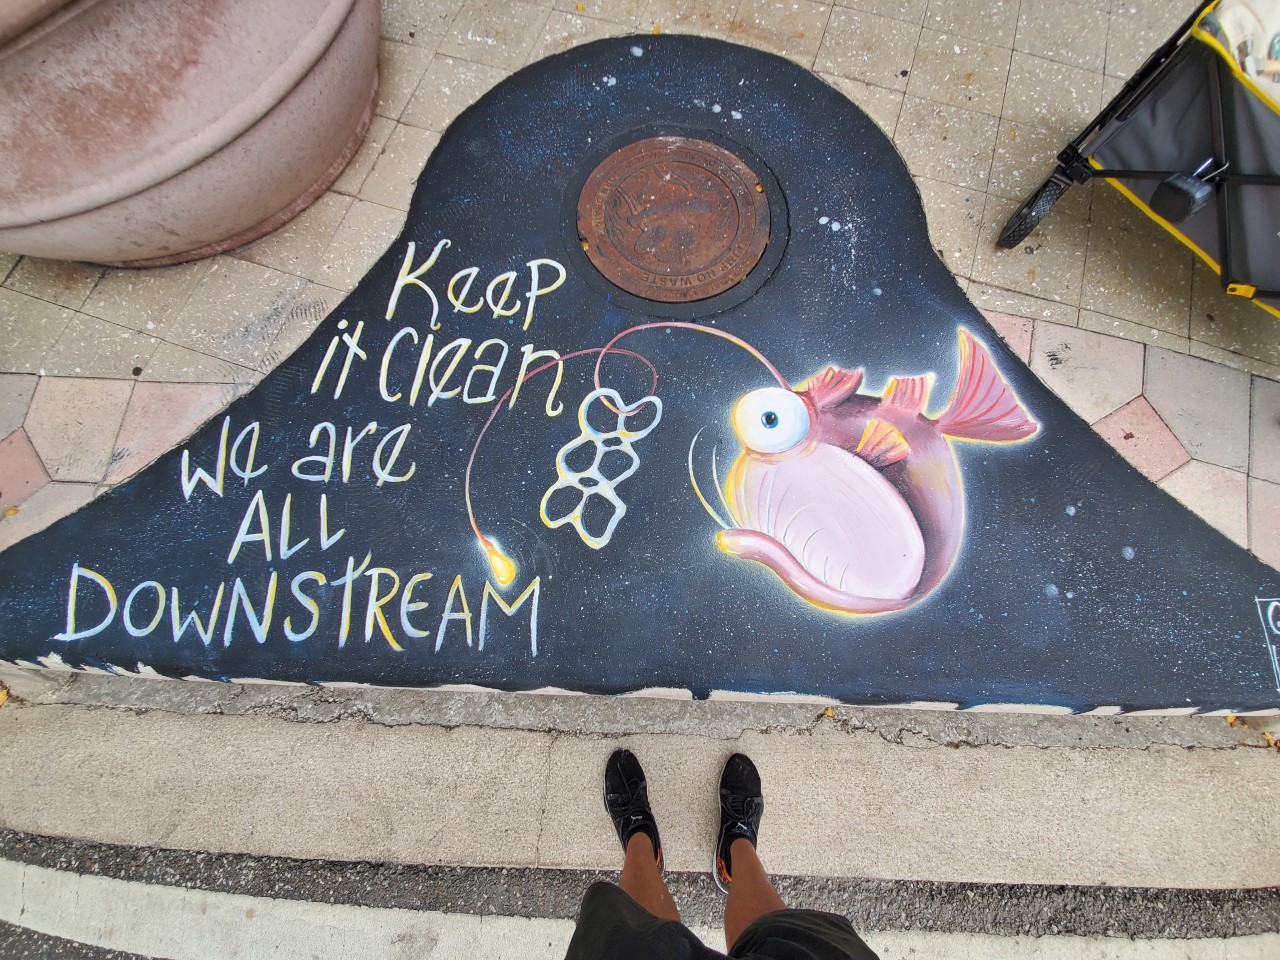 NO WASTE
Keep
it Clean
We are
ALL
DOWNSTREAM